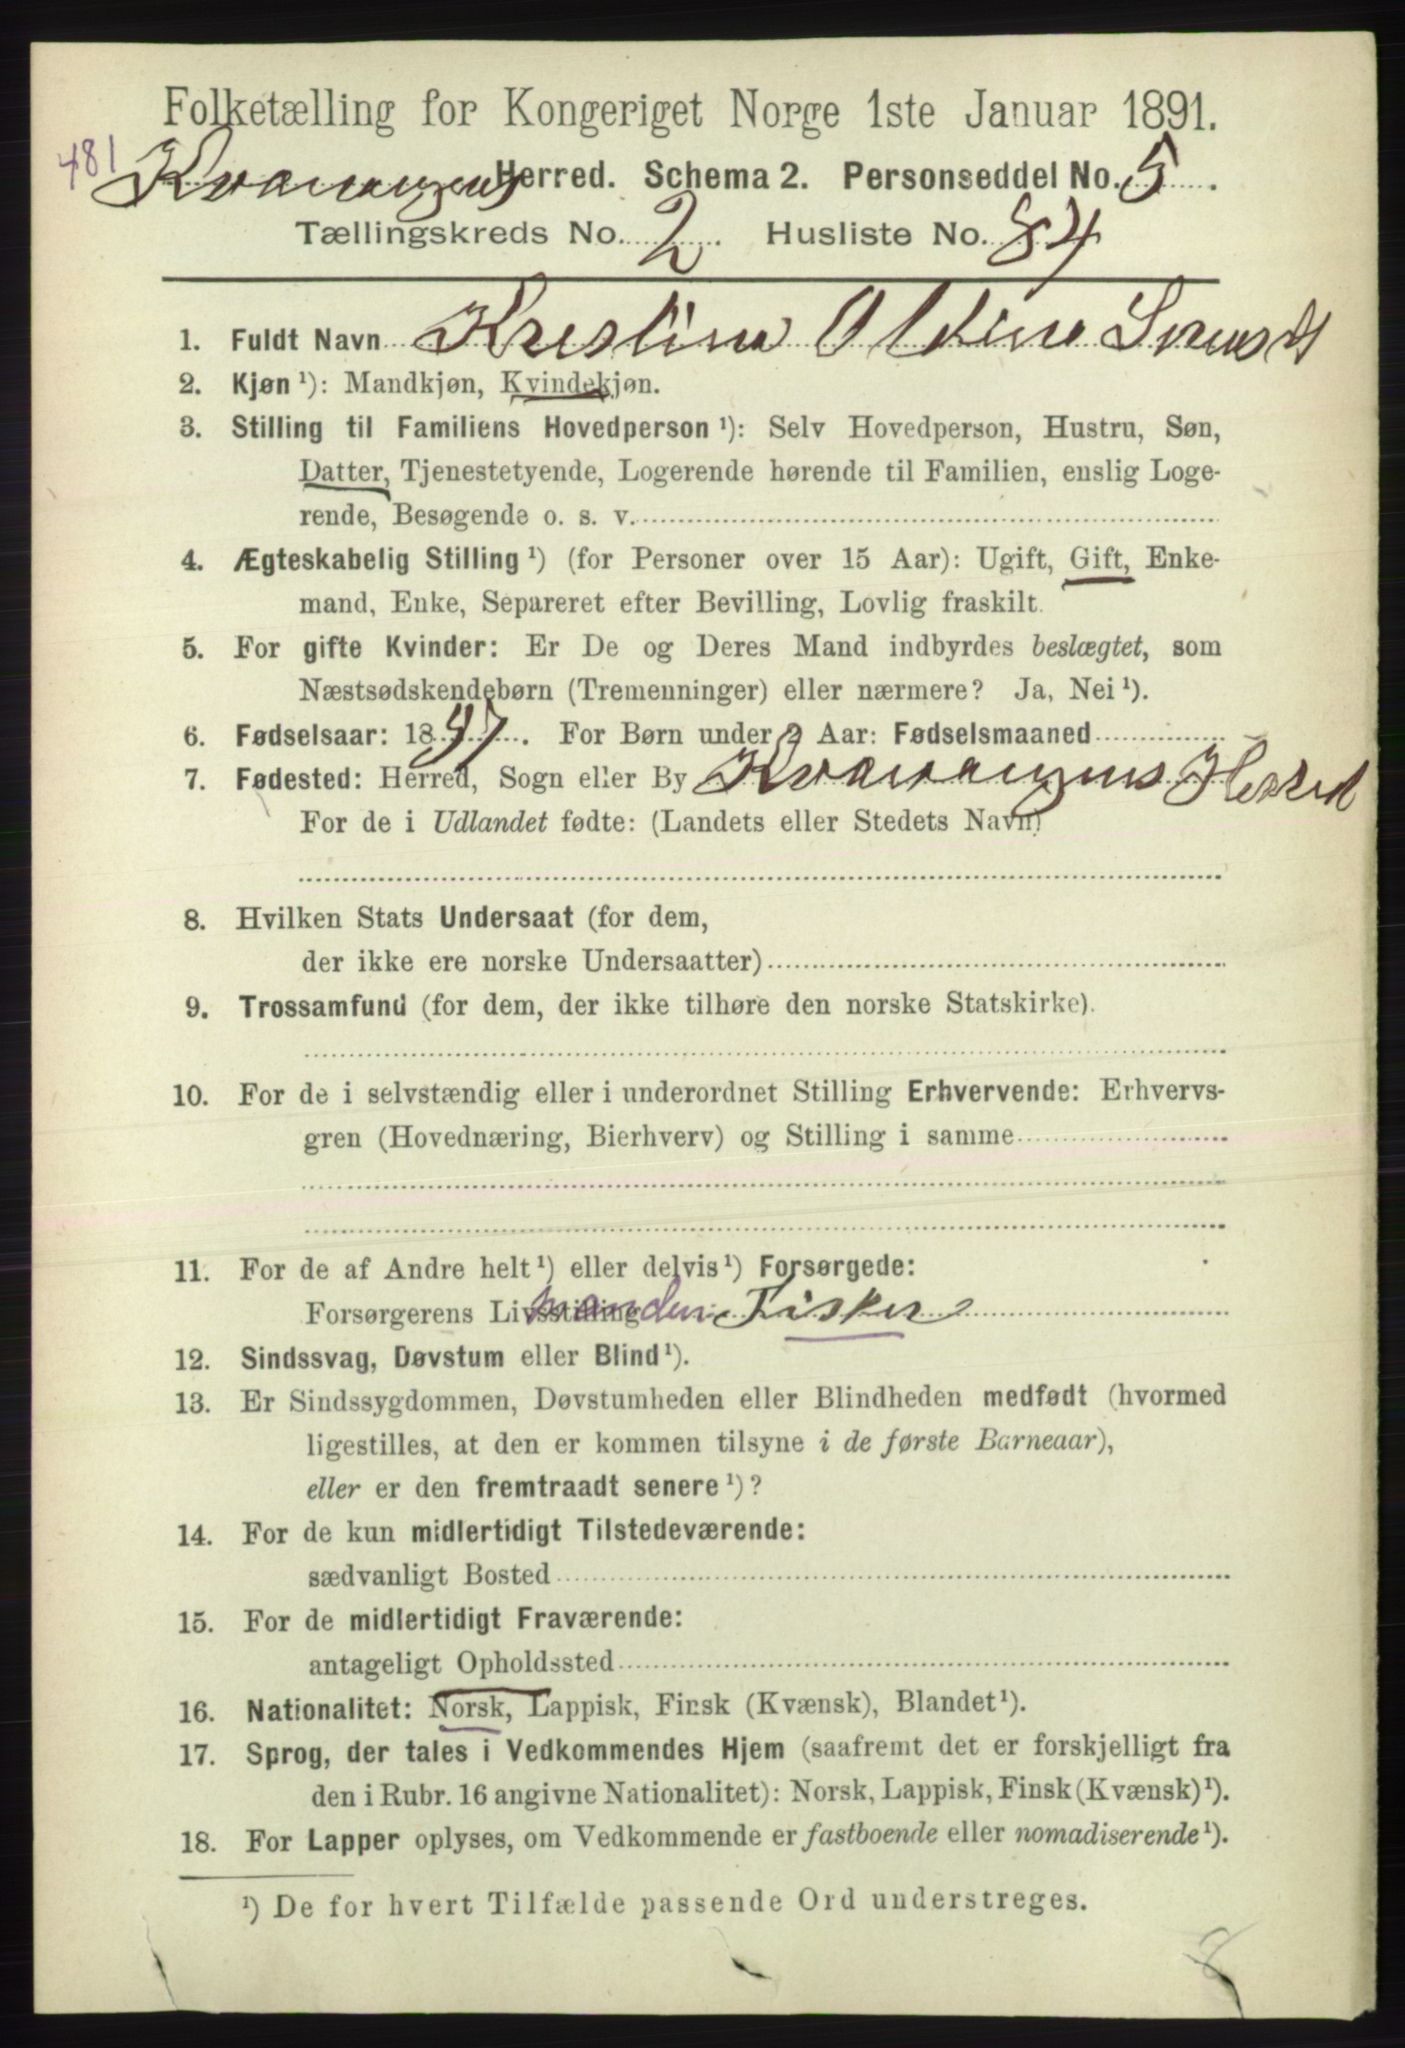 Folketælling for Kongeriget Norge 1ste Januar 1891.
481
Kvænangens Herred. Schema 2. Personseddel No. 5.
Tællingskreds No. 2. Husliste No. 84
1. Fuldt Navn Kristine Oldine
2. Kjøn ¹): Mandkjøn, Kvindekjøn.
3. Stilling til Familiens Hovedperson ¹): Selv Hovedperson, Hustru, Søn,
Datter, Tjenestetyende, Logerende hørende til Familien, enslig Loge-
rende, Besøgende o. s. v.
4. Ægteskabelig Stilling ¹) (for Personer over 15 Aar): Ugift, Gift, Enke-
mand, Enke, Separeret efter Bevilling, Lovlig fraskilt.
5. For gifte Kvinder: Er De og Deres Mand indbyrdes beslægtet, som
Næstsødskendebørn (Tremenninger) eller nærmere? Ja, Nei ¹).
6. Fødselsaar: 18 47. For Børn under 2 Aar: Fødselsmaaned
7. Fødested: Herred, Sogn eller By Kvænangens Herred
For de i Udlandet fødte: (Landets eller Stedets Navn)
8. Hvilken Stats Undersaat (for dem,
der ikke ere norske Undersaatter)
9. Trossamfund (for dem, der ikke tilhøre den norske Statskirke).
10. For de i selvstændig eller i underordnet Stilling Erhvervende: Erhvervs-
gren (Hovednæring, Bierhverv) og Stilling i samme
11. For de af Andre helt ¹) eller delvis ¹) Forsørgede:
Forsørgerens Livsstilling manden Fisker
12. Sindssvag, Døvstum eller Blind ¹).
13. Er Sindssygdommen, Døvstumheden eller Blindheden medfødt (hvormed
ligestilles, at den er kommen tilsyne i de første Barneaar),
eller er den fremtraadt senere ¹)?
14. For de kun midlertidigt Tilstedeværende:
sædvanligt Bosted
15. For de midlertidigt Fraværende:
antageligt Opholdssted
16. Nationalitet: Norsk, Lappisk, Finsk (Kvænsk), Blandet ¹).
17. Sprog, der tales i Vedkommendes Hjem (saafremt det er forskjelligt fra
den i Rubr. 16 angivne Nationalitet): Norsk, Lappisk, Finsk (Kvænsk) ¹).
18. For Lapper oplyses, om Vedkommende er fastboende eller nomadiserende ¹).
¹) De for hvert Tilfælde passende Ord understreges.
8